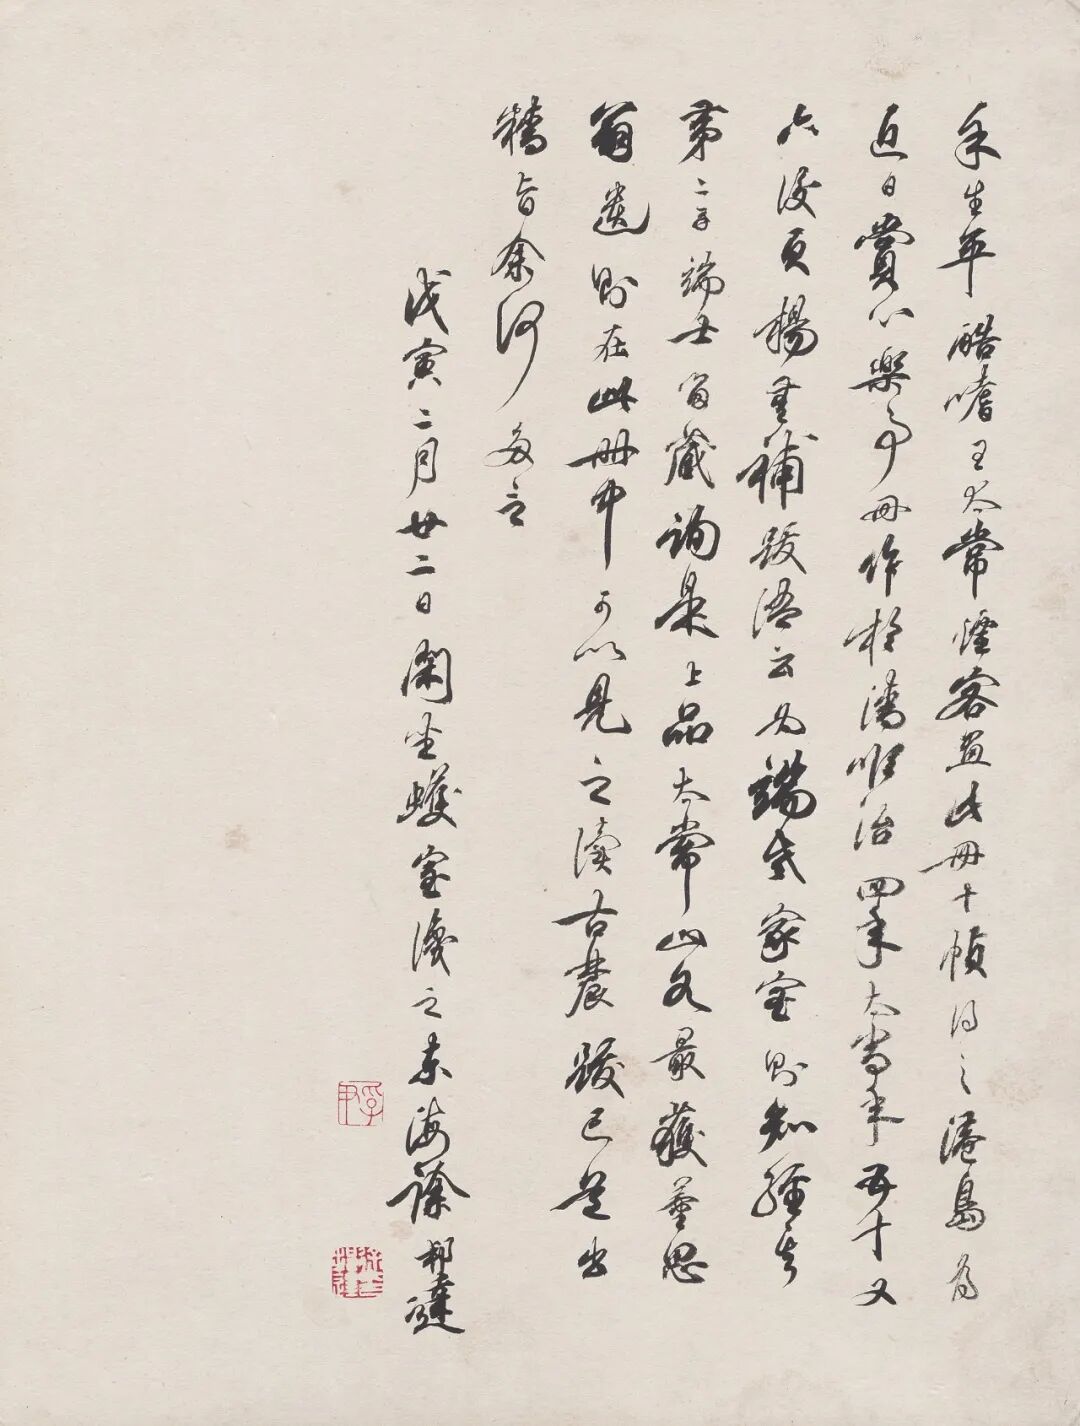 余生平酷嗜王太常煙客畫此册十幀得之港島為
近日賞心樂事册作於清順治四年太常年五十又
六後頁楊補跋語云為端士家寶則知經
第二子端士留藏詢是上品太常山水最獲董思
翁遺則在此册中可以見之讀古農跋已是出
藉旨余何多言
戊寅二月廿二日閑坐蠖室識之東海徐邦達
孚尹